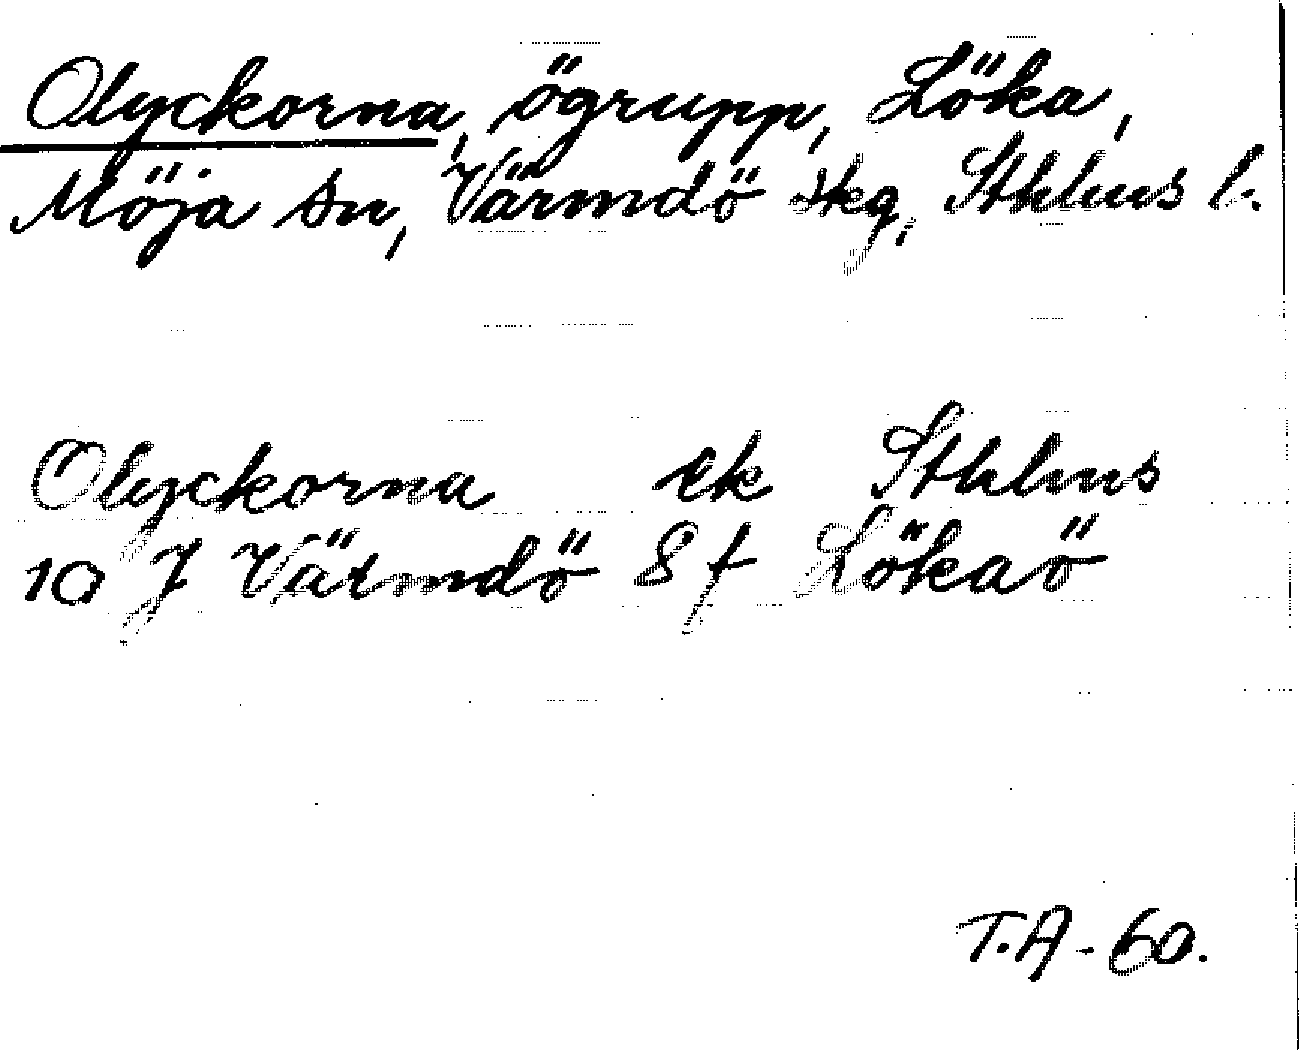 Olyckorna, ögrupp, Löka,
Möja sn, Värmdö skg, Sthlms l.
Olyckorna ek Sthlms
10 J Värmdö 8 f Lökaö
T.A. - 60.